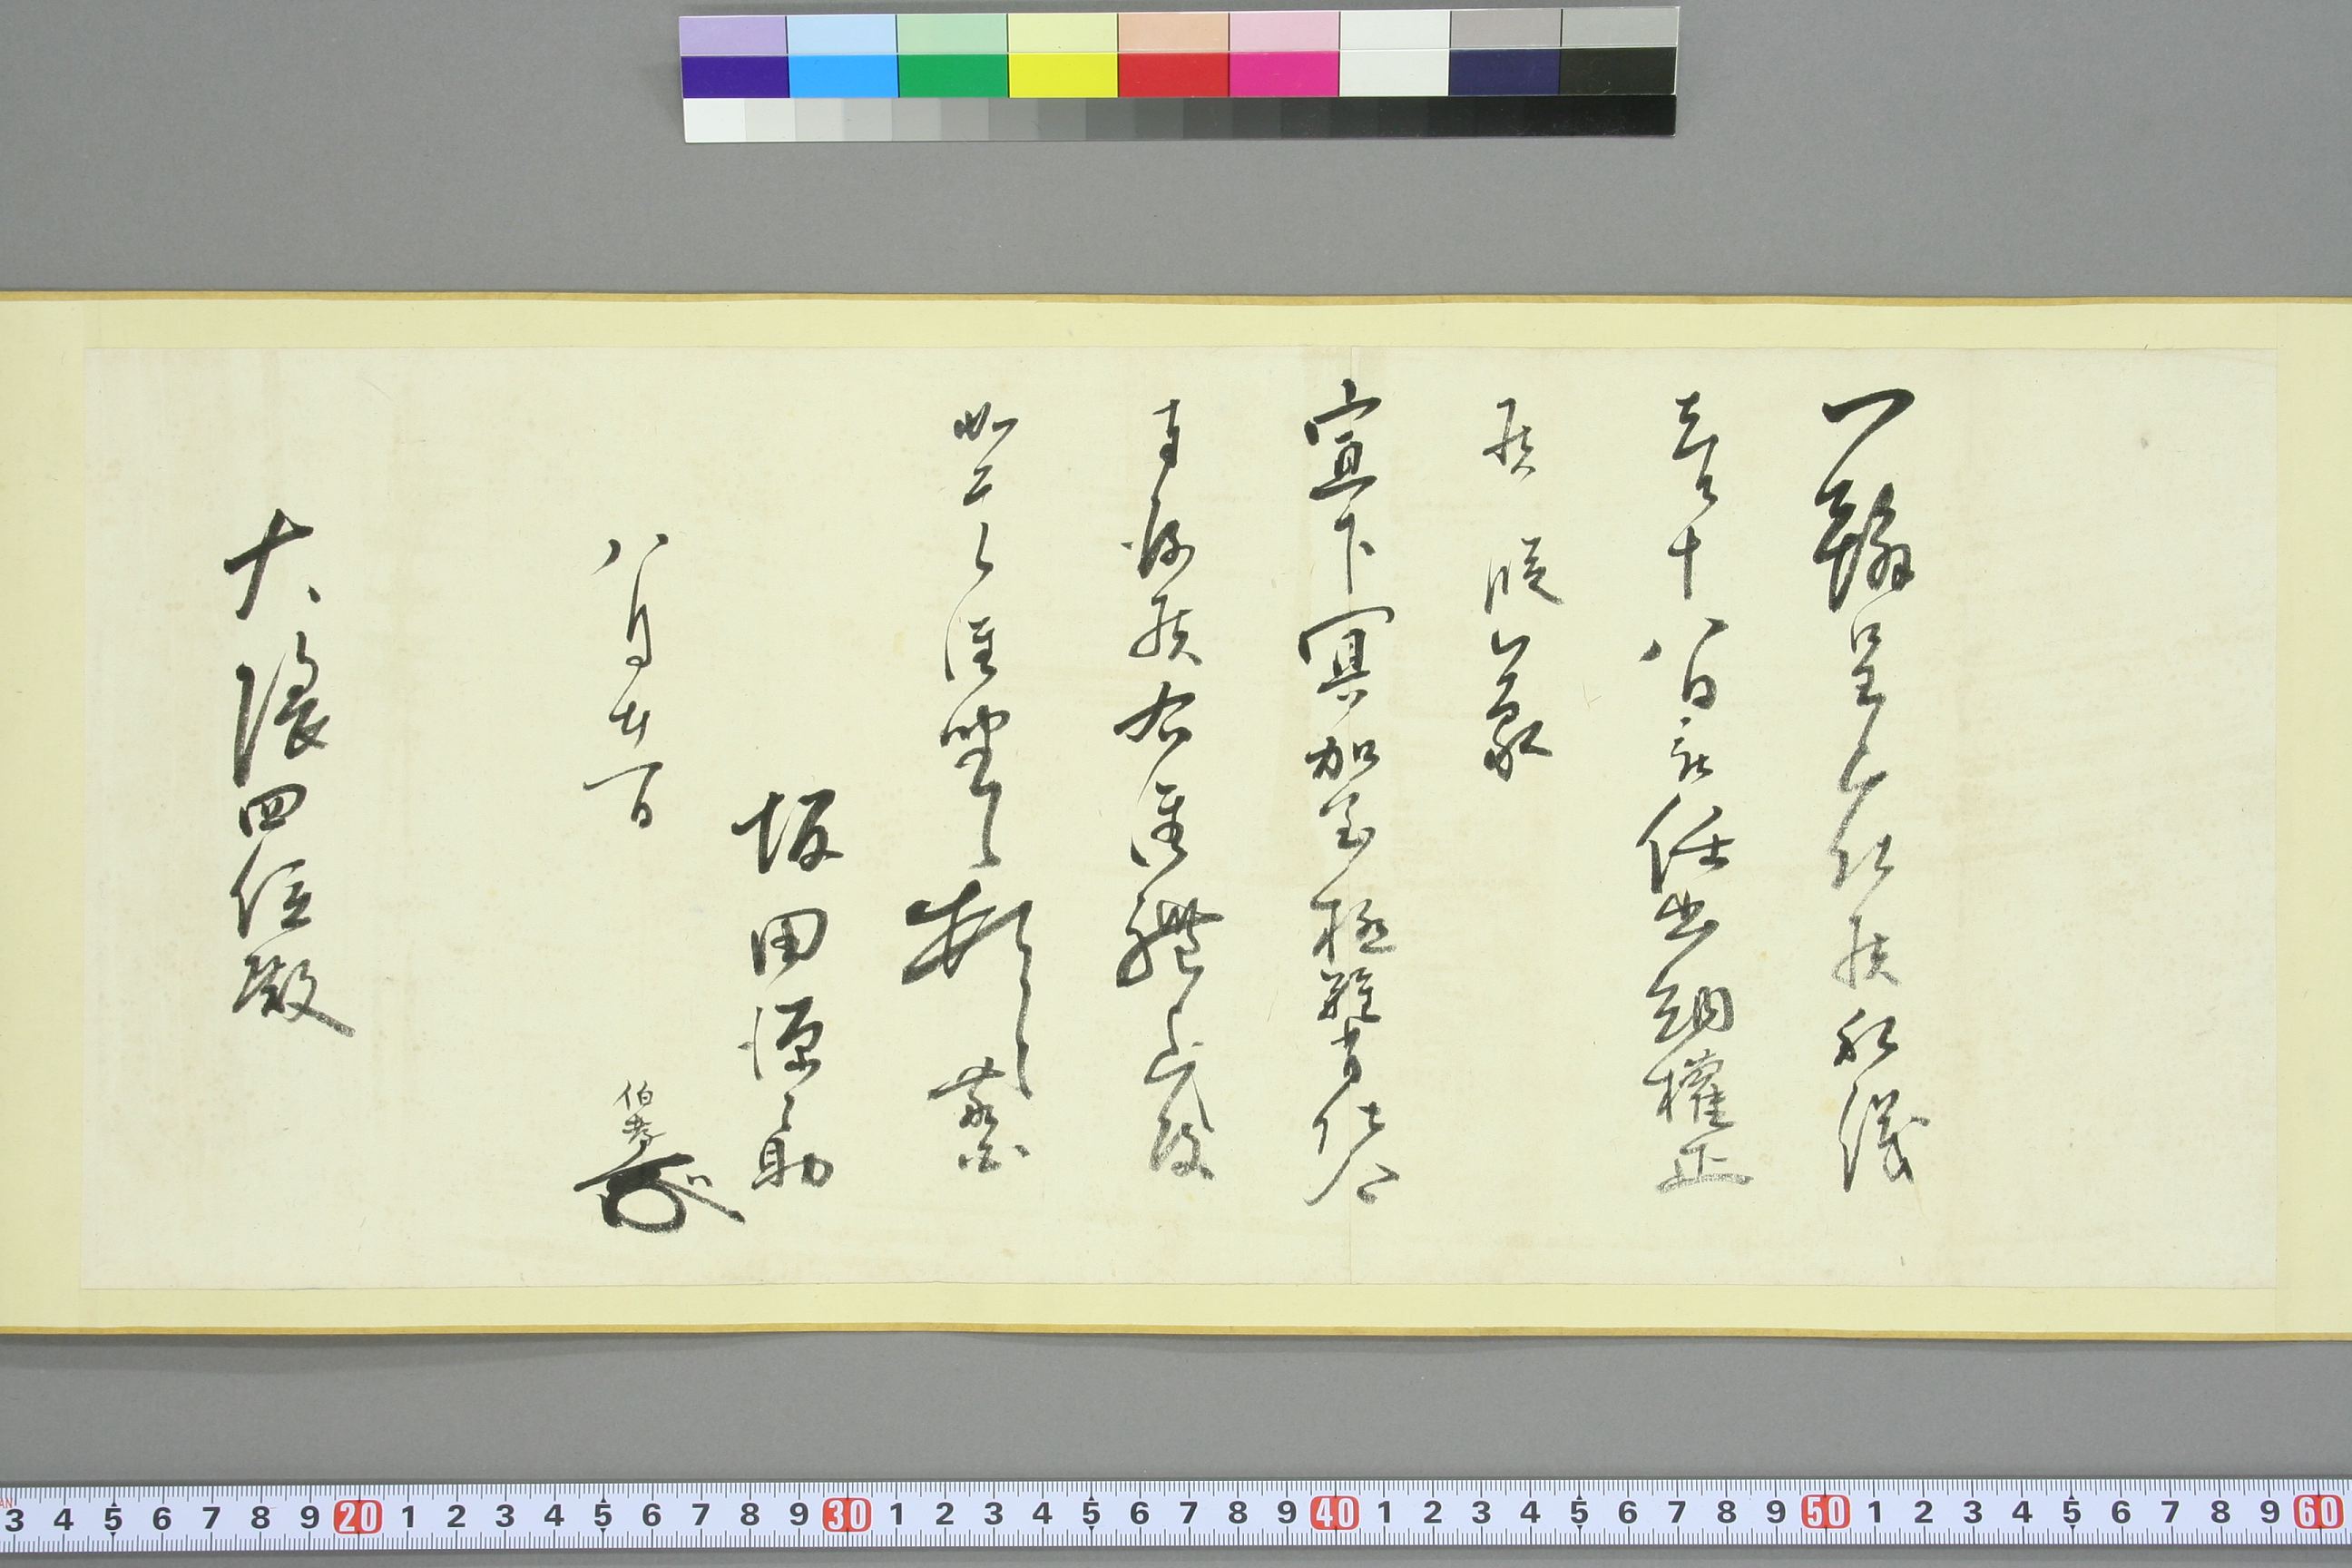 一翰呈上仕候私儀
去ル十八日被任出納權正
候段蒙
宣下冥加至極難有仕合
奉存候右御禮
如此御坐候
坂田源之助
八月廿一日
伯孝
大隈四位殿
3 4 5 6 7 8 9 20 1 2 3 4 5 6 7 8 9 30 1 2 3 4 5 6 7 8 9 40 1 2 3 4 5 6 7 8 9 50 1 2 3 4 5 6 7 8 9 60